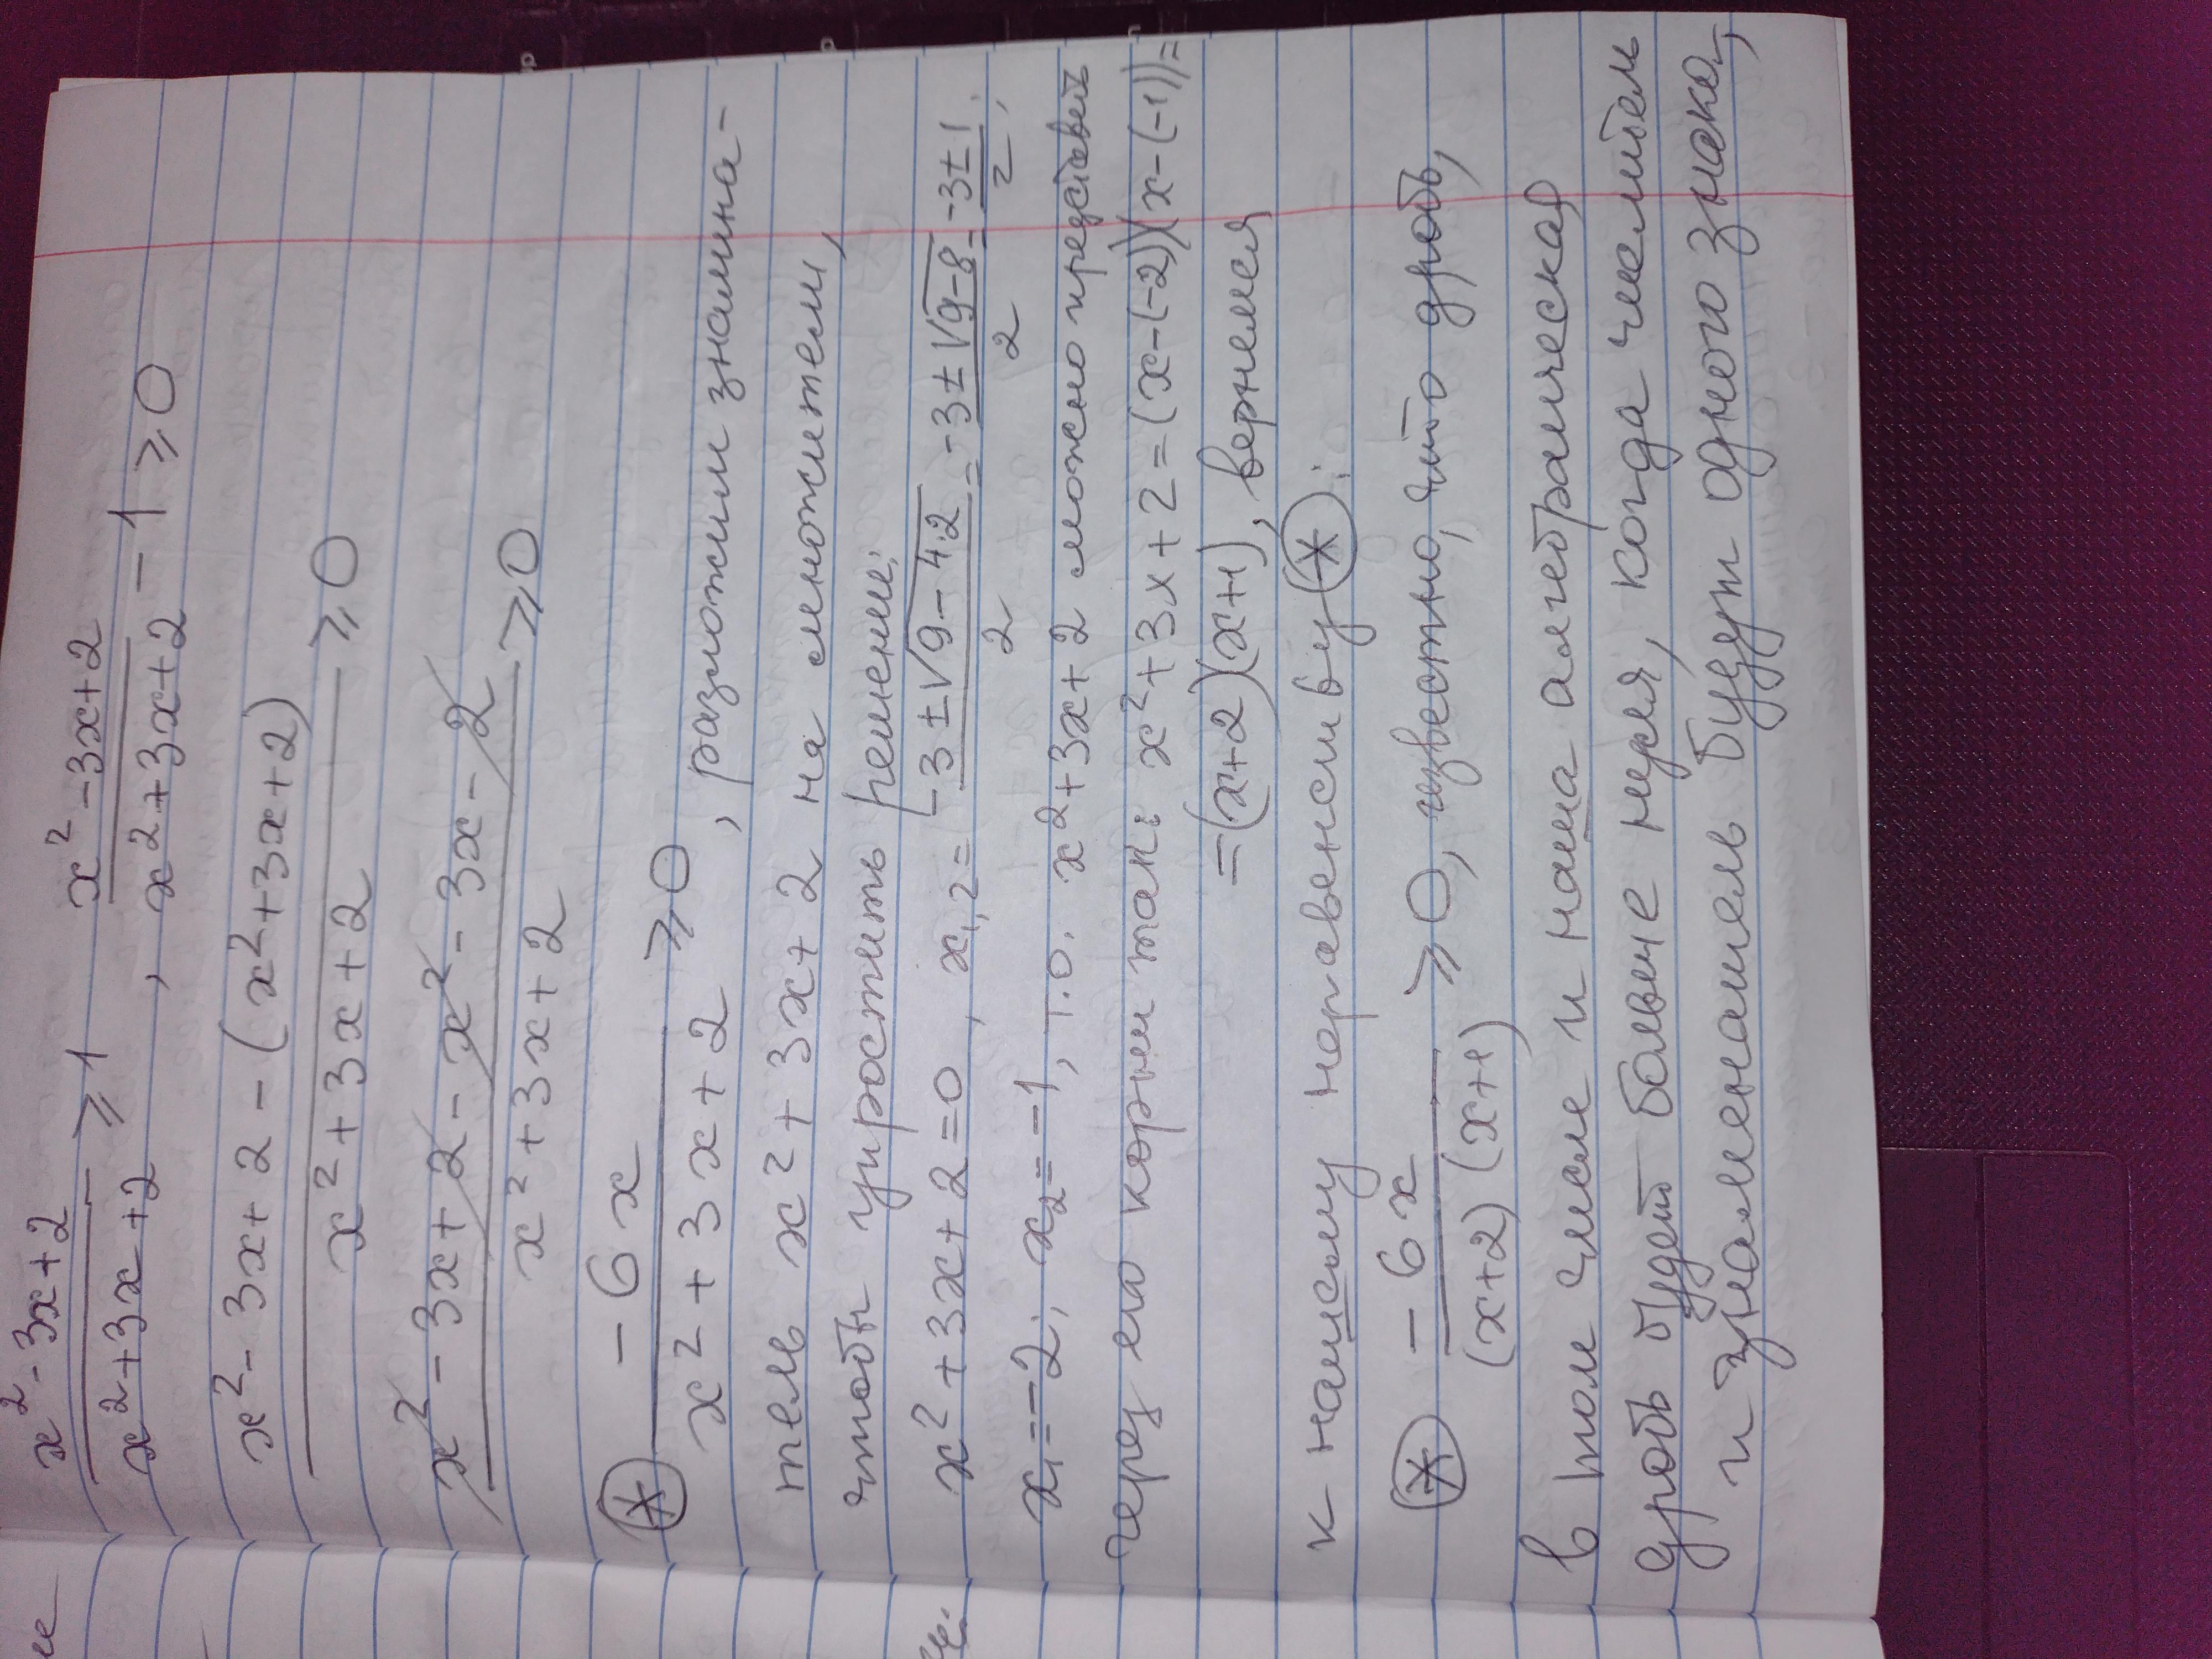 x² - 3x + 2 / x² + 3x + 2 ⩾ 1, x² - 3x + 2 / x² + 3x + 2 - 1 ⩾ 0
x² - 3x + 2 - (x² + 3x + 2) / x² + 3x + 2 ⩾ 0
x² - 3x + 2 - x² - 3x - 2 / x² + 3x + 2 ⩾ 0
(*) - 6x / x² + 3x + 2 ⩾ 0, разложим знамина-
тель x² + 3x + 2 на множители,
чтобы упростить решение:
x² + 3x + 2 = 0, x₁,₂ = -3 ± √9 - 4·2 / 2 = -3 ± √9 - 8 / 2 = -3 ± 1 / 2;
x₁ = -2; x₂ = -1, т.о. x² + 3x + 2 можно представить
через его корни так: x² + 3x + 2 = (x - (-2))(x - (-1)) =
= (x+2)(x+1), вернемся
к нашему неравенству (*):
(*) - 6x / (x+2)(x+1) ⩾ 0, известно, что дробь,
в том числе и наша алгебраическая
дробь будет больше нуля, когда числитель
и знаменатель будут одного знака,